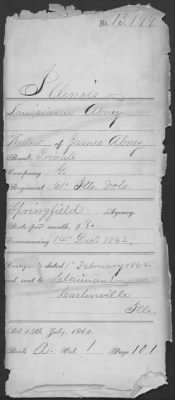 No. 13.179
Illinois
Louisiana Abney
Widow of James Abney
Rank Private
Company G.
Regiment Ills. Vols.
Springfield Agency.
Rate per month, $8.
Commencing 14" Dect. 1862.
Certificate dated February 1864
and sent to Claimant
Carlinville
Ills.
Act 14th July, 1862.
Book A. Vol. 1 Page 101